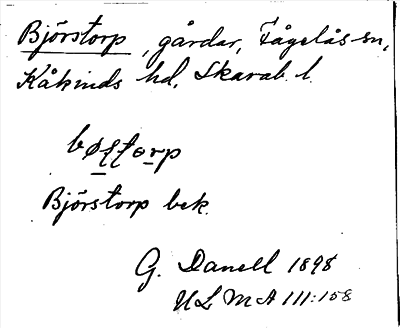 Björstorp, gårdar, Fågelås sn,
Kåkinds hd, Skarab. l.
Björstorp bek.
G. Danell 1898
ULMA 111:158